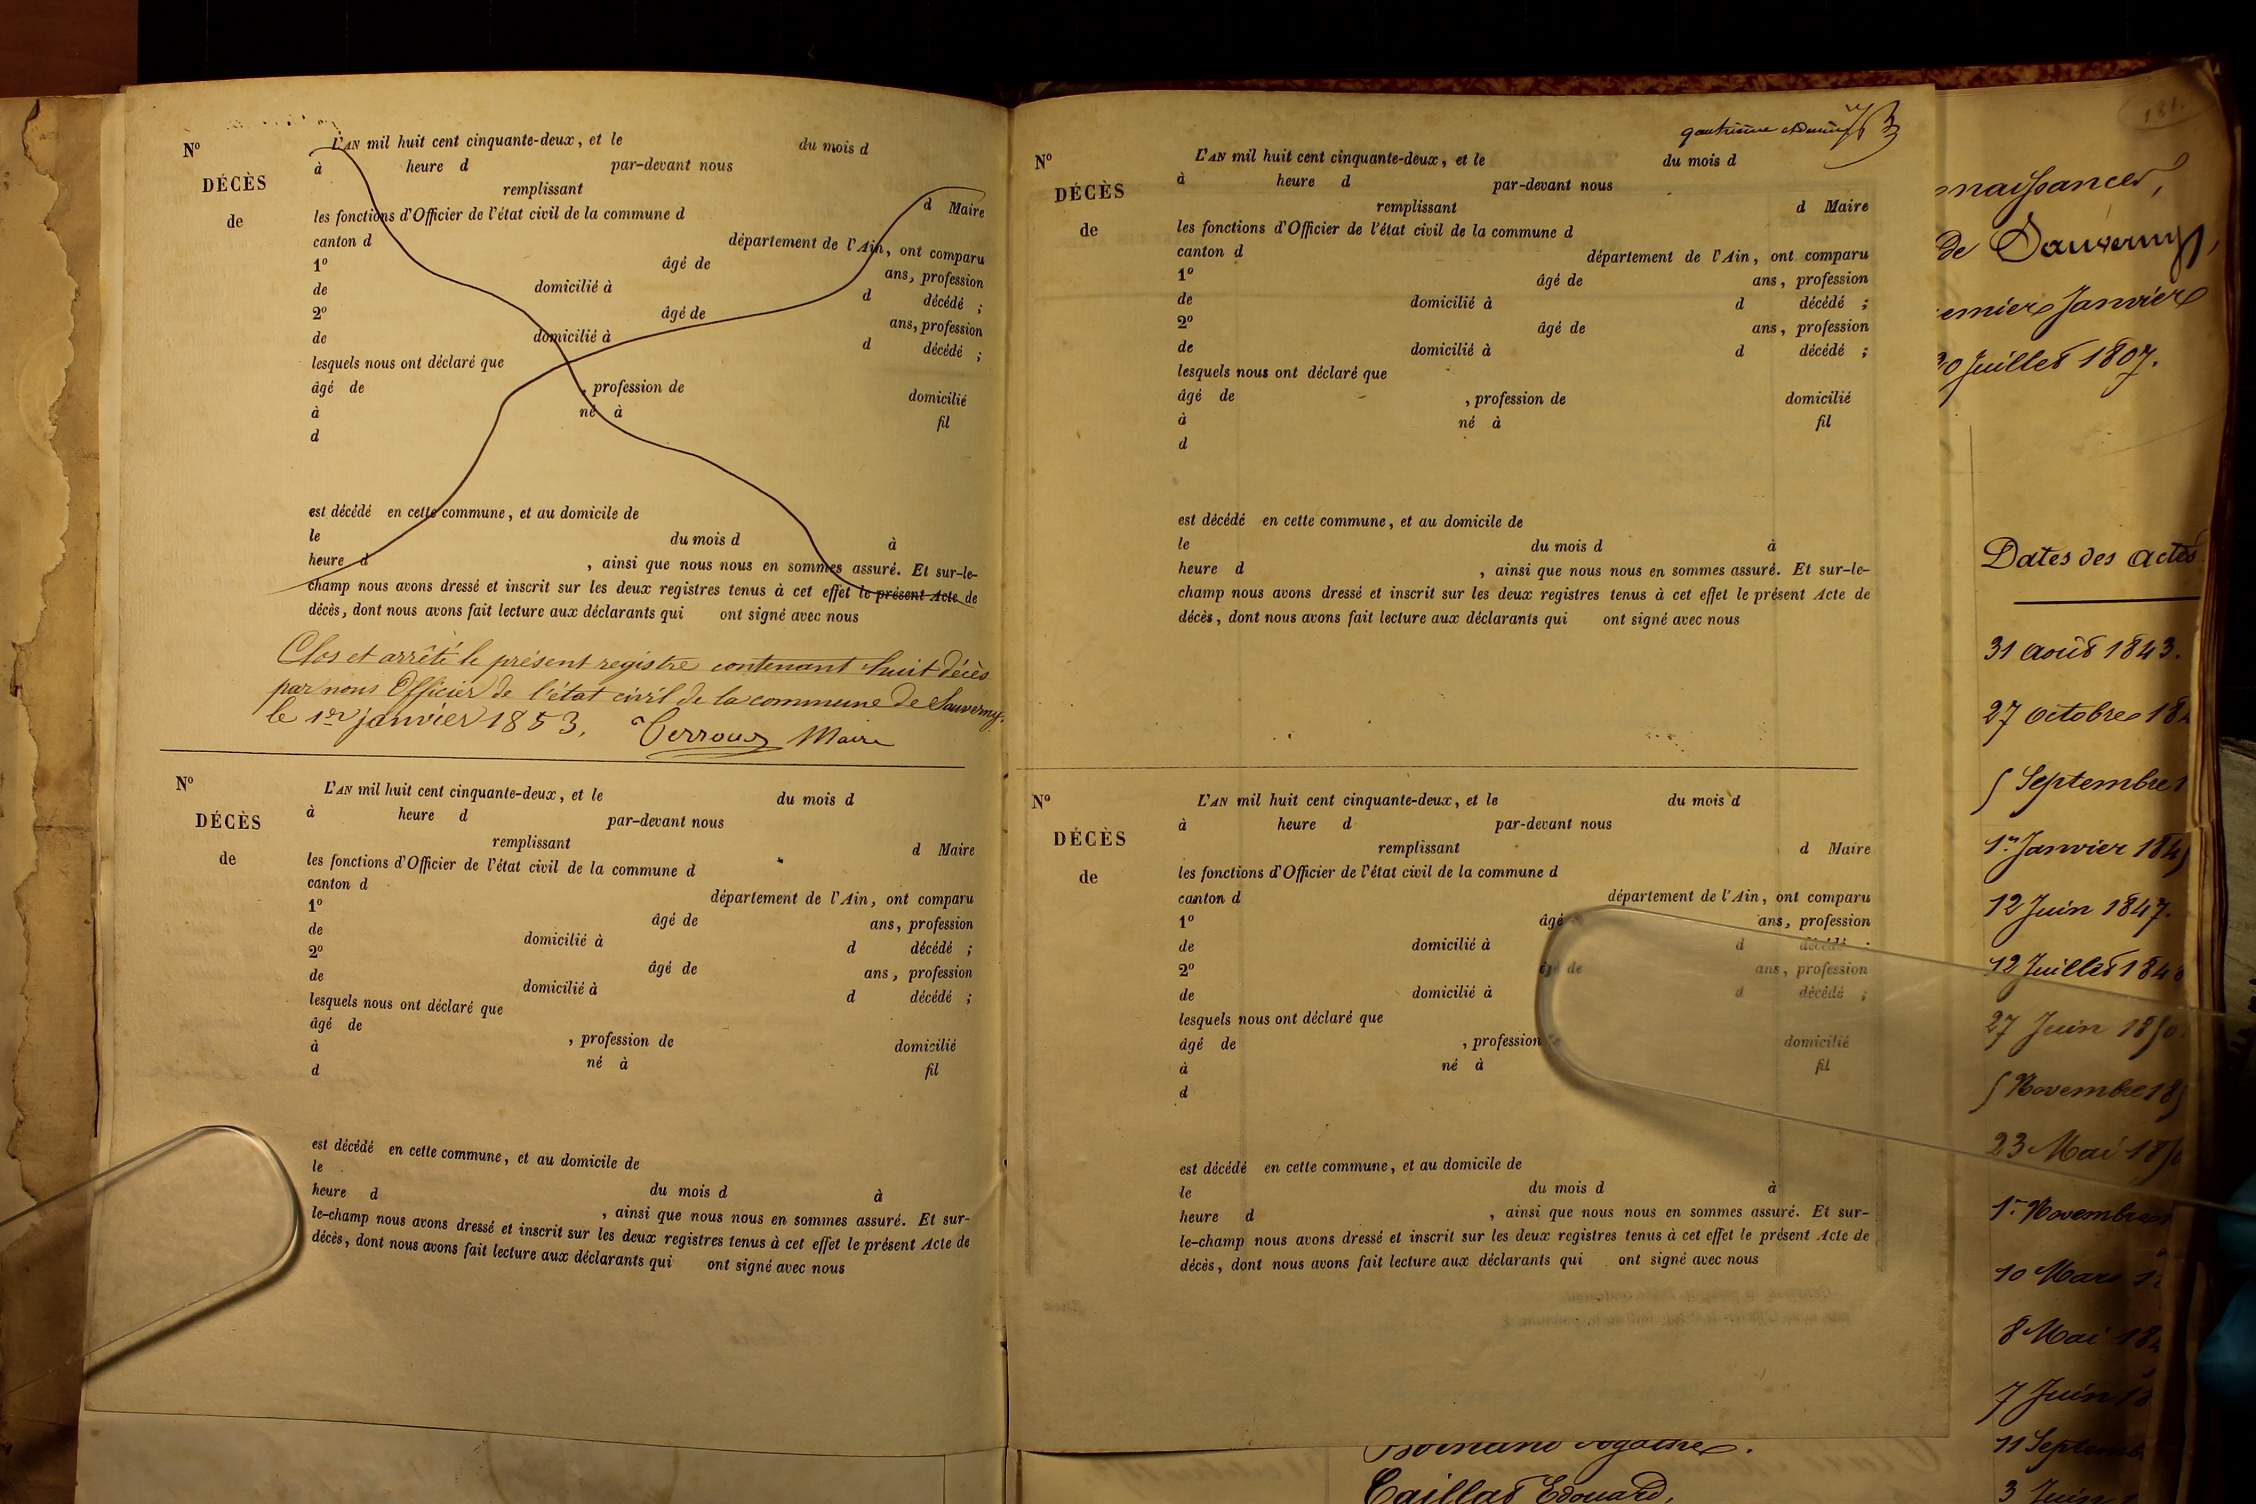 Nº
DÉCÈS
de
L'AN mil huit cent cinquante-deux, et le du mois d
à heure d par-devant nous
remplissant d Maire
les fonctions d'Officier de l'état civil de la commune d
canton d département de l'Ain, ont comparu
1º âgé de ans, profession
de domicilié à d décédé ;
2º âgé de ans, profession
de domicilié à d décédé ;
lesquels nous ont déclaré que
âgé de , profession de domicilié
à né à fil
d
est décédé en cette commune, et au domicile de
le du mois d à
heure d , ainsi que nous nous en sommes assuré. Et sur-le-
champ nous avons dressé et inscrit sur les deux registres tenus à cet effet le présent Acte de
décès, dont nous avons fait lecture aux déclarants qui ont signé avec nous
Clos et arrêté le présent registre contenant huit décès
par nous Officier de l'état civil de la commune de Sauverny.
le 1er janvier 1853. Perroux Maire
Nº
DÉCÈS
de
L'AN mil huit cent cinquante-deux, et le du mois d
à heure d par-devant nous
remplissant d Maire
les fonctions d'Officier de l'état civil de la commune d
canton d département de l'Ain, ont comparu
1º âgé de ans, profession
de domicilié à d décédé ;
2º âgé de ans, profession
de domicilié à d décédé ;
lesquels nous ont déclaré que
âgé de , profession de domicilié
à né à fil
d
est décédé en cette commune, et au domicile de
le du mois d à
heure d , ainsi que nous nous en sommes assuré. Et sur-
le-champ nous avons dressé et inscrit sur les deux registres tenus à cet effet le présent Acte de
décès, dont nous avons fait lecture aux déclarants qui ont signé avec nous
Nº
DÉCÈS
de
L'AN mil huit cent cinquante-deux, et le du mois d
à heure d par-devant nous
remplissant d Maire
les fonctions d'Officier de l'état civil de la commune d
canton d département de l'Ain, ont comparu
1º âgé de ans, profession
de domicilié à d décédé ;
2º âgé de ans, profession
de domicilié à d décédé ;
lesquels nous ont déclaré que
âgé de , profession de domicilié
à né à fil
d
est décédé en cette commune, et au domicile de
le du mois d à
heure d , ainsi que nous nous en sommes assuré. Et sur-le-
champ nous avons dressé et inscrit sur les deux registres tenus à cet effet le présent Acte de
décès, dont nous avons fait lecture aux déclarants qui ont signé avec nous
Nº
DÉCÈS
de
L'AN mil huit cent cinquante-deux, et le du mois d
à heure d par-devant nous
remplissant d Maire
les fonctions d'Officier de l'état civil de la commune d
canton d département de l'Ain, ont comparu
1º âgé de ans, profession
de domicilié à d décédé ;
2º âgé de ans, profession
de domicilié à d décédé ;
lesquels nous ont déclaré que
âgé de , profession de domicilié
à né à fil
d
est décédé en cette commune, et au domicile de
le du mois d à
heure d , ainsi que nous nous en sommes assuré. Et sur-
le-champ nous avons dressé et inscrit sur les deux registres tenus à cet effet le présent Acte de
décès, dont nous avons fait lecture aux déclarants qui ont signé avec nous
Agathe.
Caillat Edouard,
181.
naissances,
de Sauverny,
Janvier
Juillet 1807.
Dates des actes
31 août 1843.
27 octobre 18
5 Septembre 1
1er Janvier 184
12 Juin 1847.
12 Juillet 184
27 Juin 1850.
5 Novembre 18
23 Mai 185
1er Novembre
10 Mars 1
8 Mai 18
7 Juin 1
11 Septemb
3 Juin